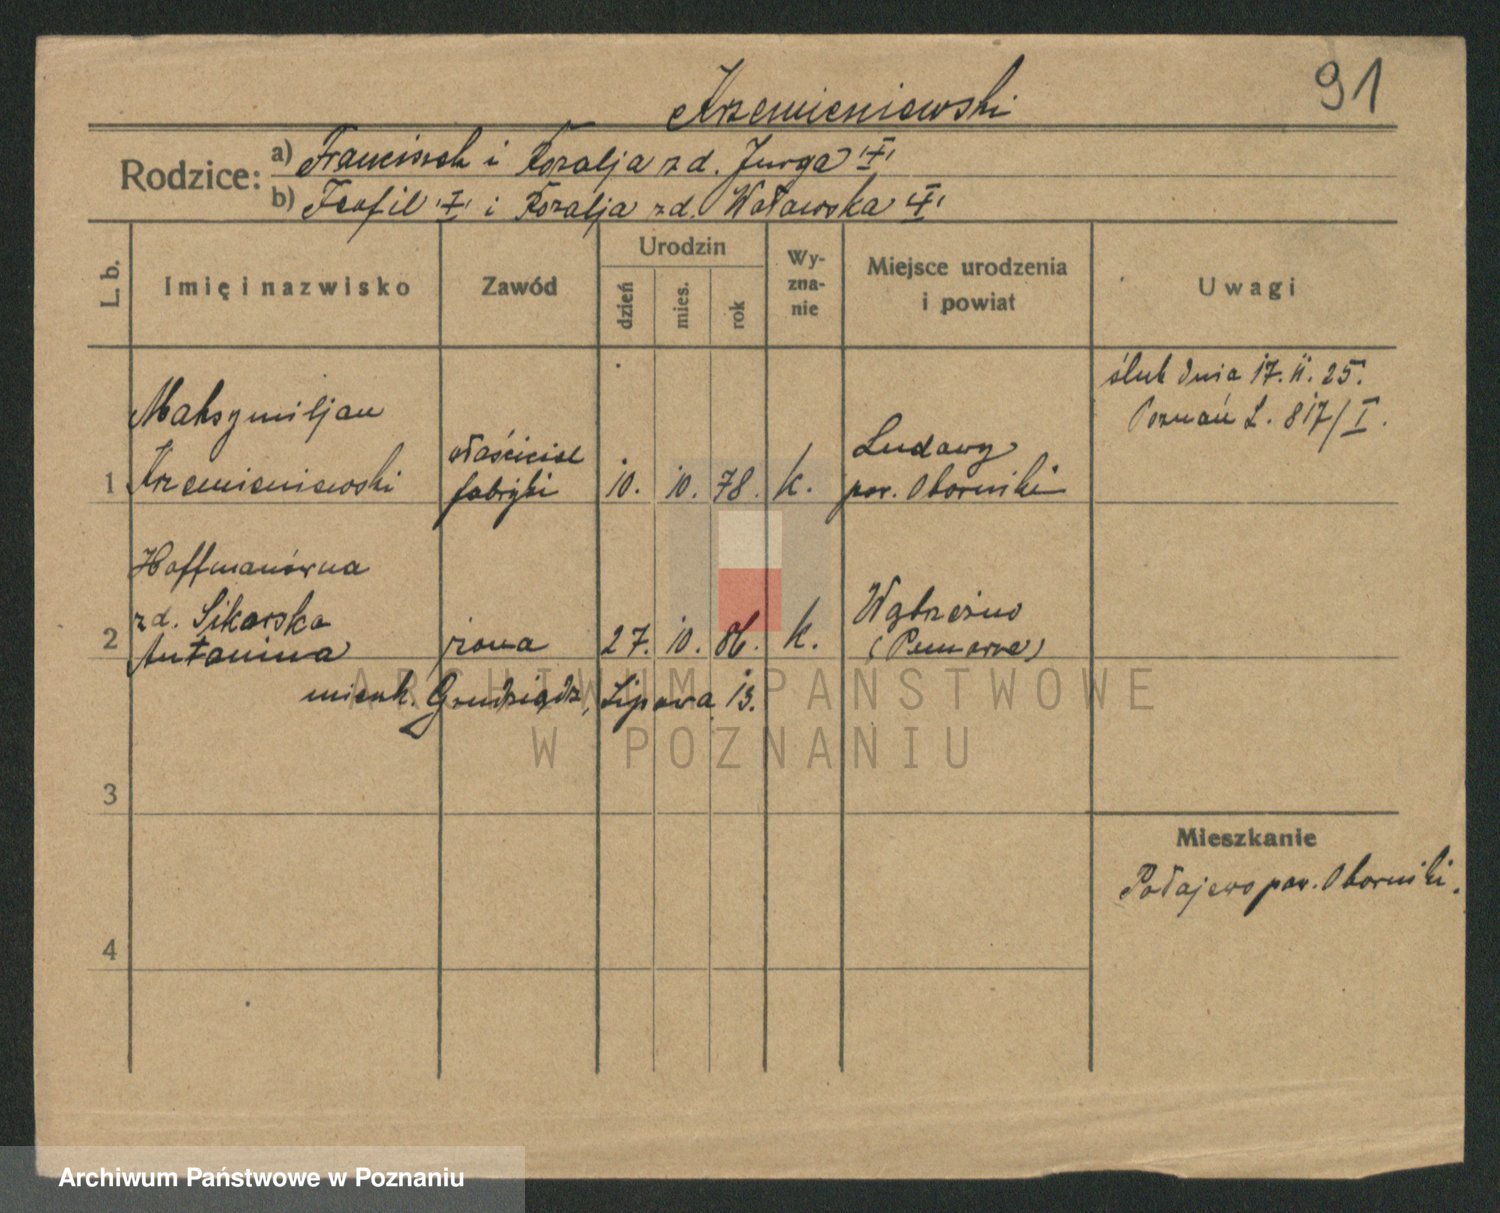 91
Krzemieniewski
Rodzice:
a) Franciszek i Rozalja zd. Jurga '†'
b) Teofil '†' i Rozalja zd. Watawska '†'
L. b.
Imię i nazwisko
Zawód
Urodzin
dzień
mies.
rok
Wy-
zna-
nie
Miejsce urodzenia
i powiat
Uwagi
ślub dnia 17. II. 25.
Poznań L. 817/I.
Maksymiljan
1 Krzemieniewski
właściciel
fabryki
10. 10. 78. k.
Ludomy
pow. Oborniki
Hoffmanówna
zd. Sikorska
2 Antonina
żona
27. 10. 86. k.
Wąbrzeźno
(Pomorze)
mieszk. Grudziądz, Lipowa 13.
3
Mieszkanie
Połajewo pow. Oborniki.
4
ARCHIWUM PAŃSTWOWE
W POZNANIU
Archiwum Państwowe w Poznaniu